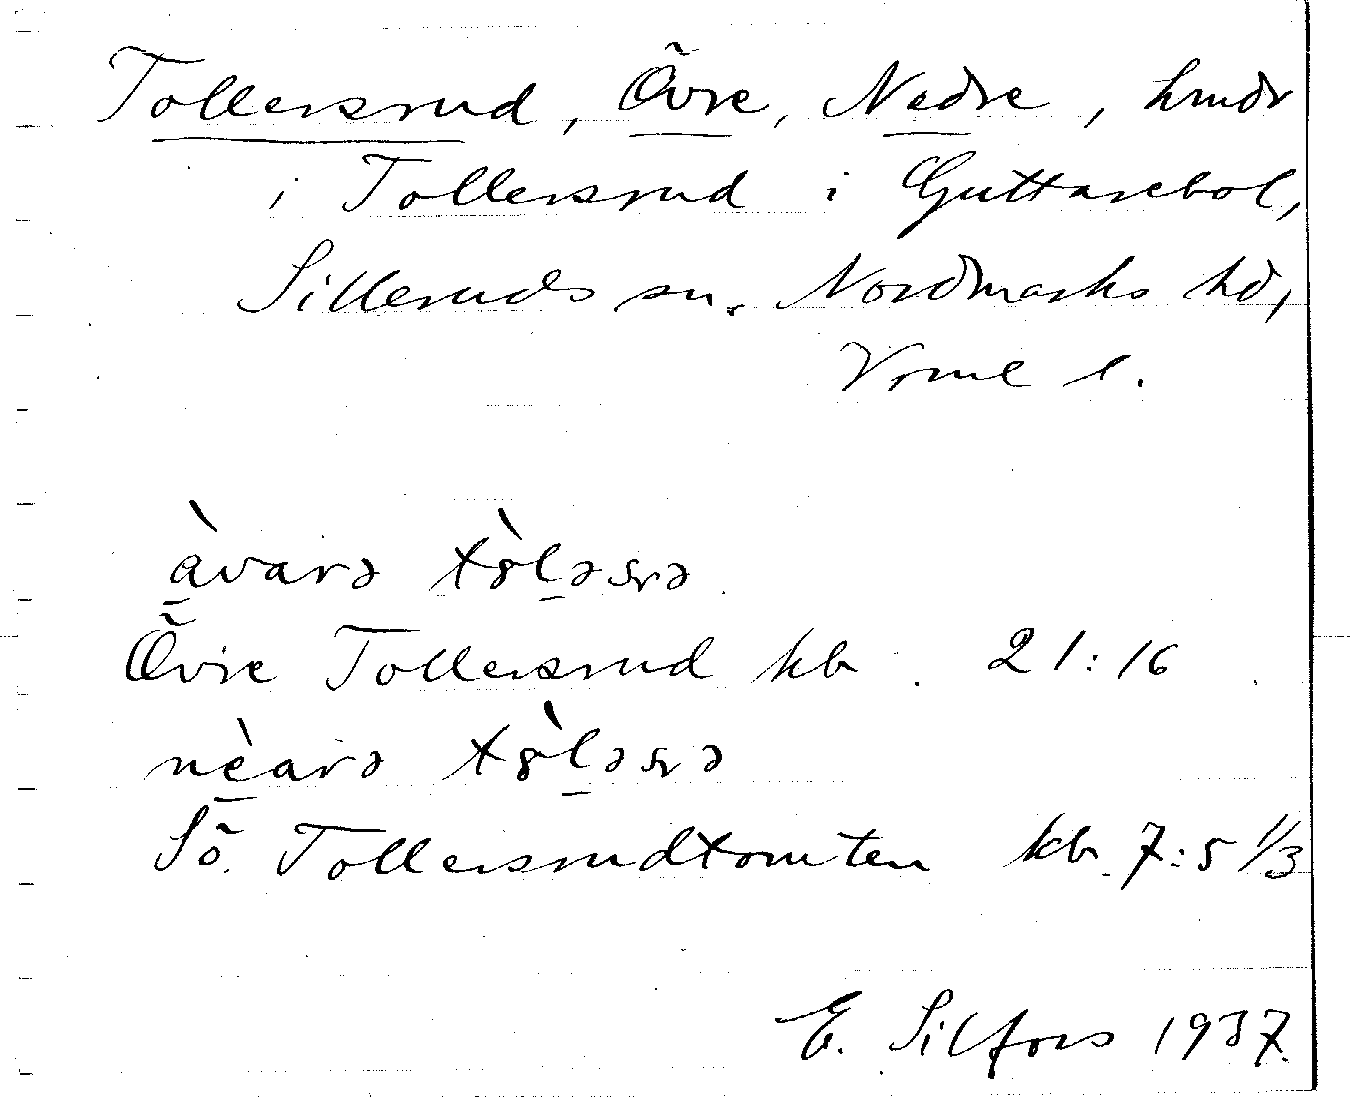 Tollersrud, Övre, Nedre, hmdr
i Tollersrud i Guttarebol,
Silleruds sn. Nordmarks hd,
Vrml l.
àvarə tòləsrə
Övre Tollersrud kb 21:16
nèarə tòləsrə
Sö. Tollersrudtomten kb. 7:5 1/3
E. Silfors 1937.